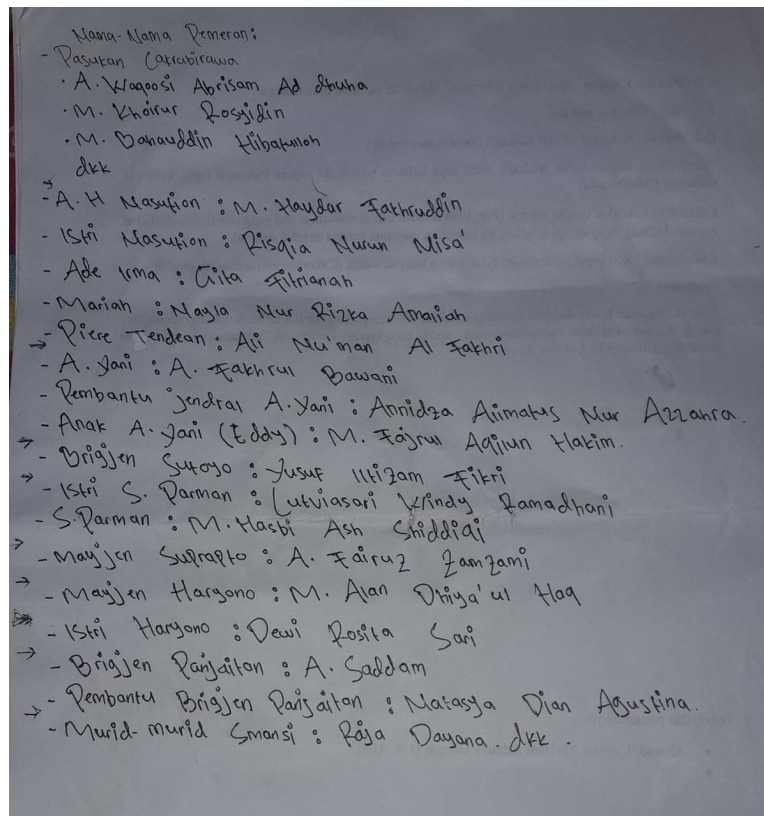 Nama-Nama Pemeran:
- Pasukan Cakrabirawa
· A. Waqoosi Abrisam Ad dhuha
· M. Khoirur Rosyidin
· M. Bahauddin Hibatulloh
dkk
- A. H Nasution : M. Haydar Fathruddin
- Istri Nasution : Risqia Nurun Nisa'
- Ade Irma : Gita Fitrianah
- Mariah : Nayla Nur Rizka Amaliah
- Piere Tendean : Ali Nu'man Al Fakhri
- A. Yani : A. Fakhrul Bawani
- Pembantu Jendral A. Yani : Annidza Alimatus Nur Azzahra.
- Anak A. Yani (Eddy) : M. Fajrul Aqilun Hakim.
- Brigjen Sutoyo : Yusuf Iltizam Fikri
- Istri S. Parman : Lutviasari Windy Ramadhani
- S. Parman : M. Hasbi Ash Shiddiqi
- Mayjen Suprapto : A. Fairuz Zamzami
- Mayjen Haryono : M. Alan Dhiya'ul Haq
- Istri Haryono : Dewi Rosita Sari
- Brigjen Panjaitan : A. Saddam
- Pembantu Brigjen Panjaitan : Natasya Dian Agustina.
- Murid-murid Smansi : Raja Dayana. dkk.